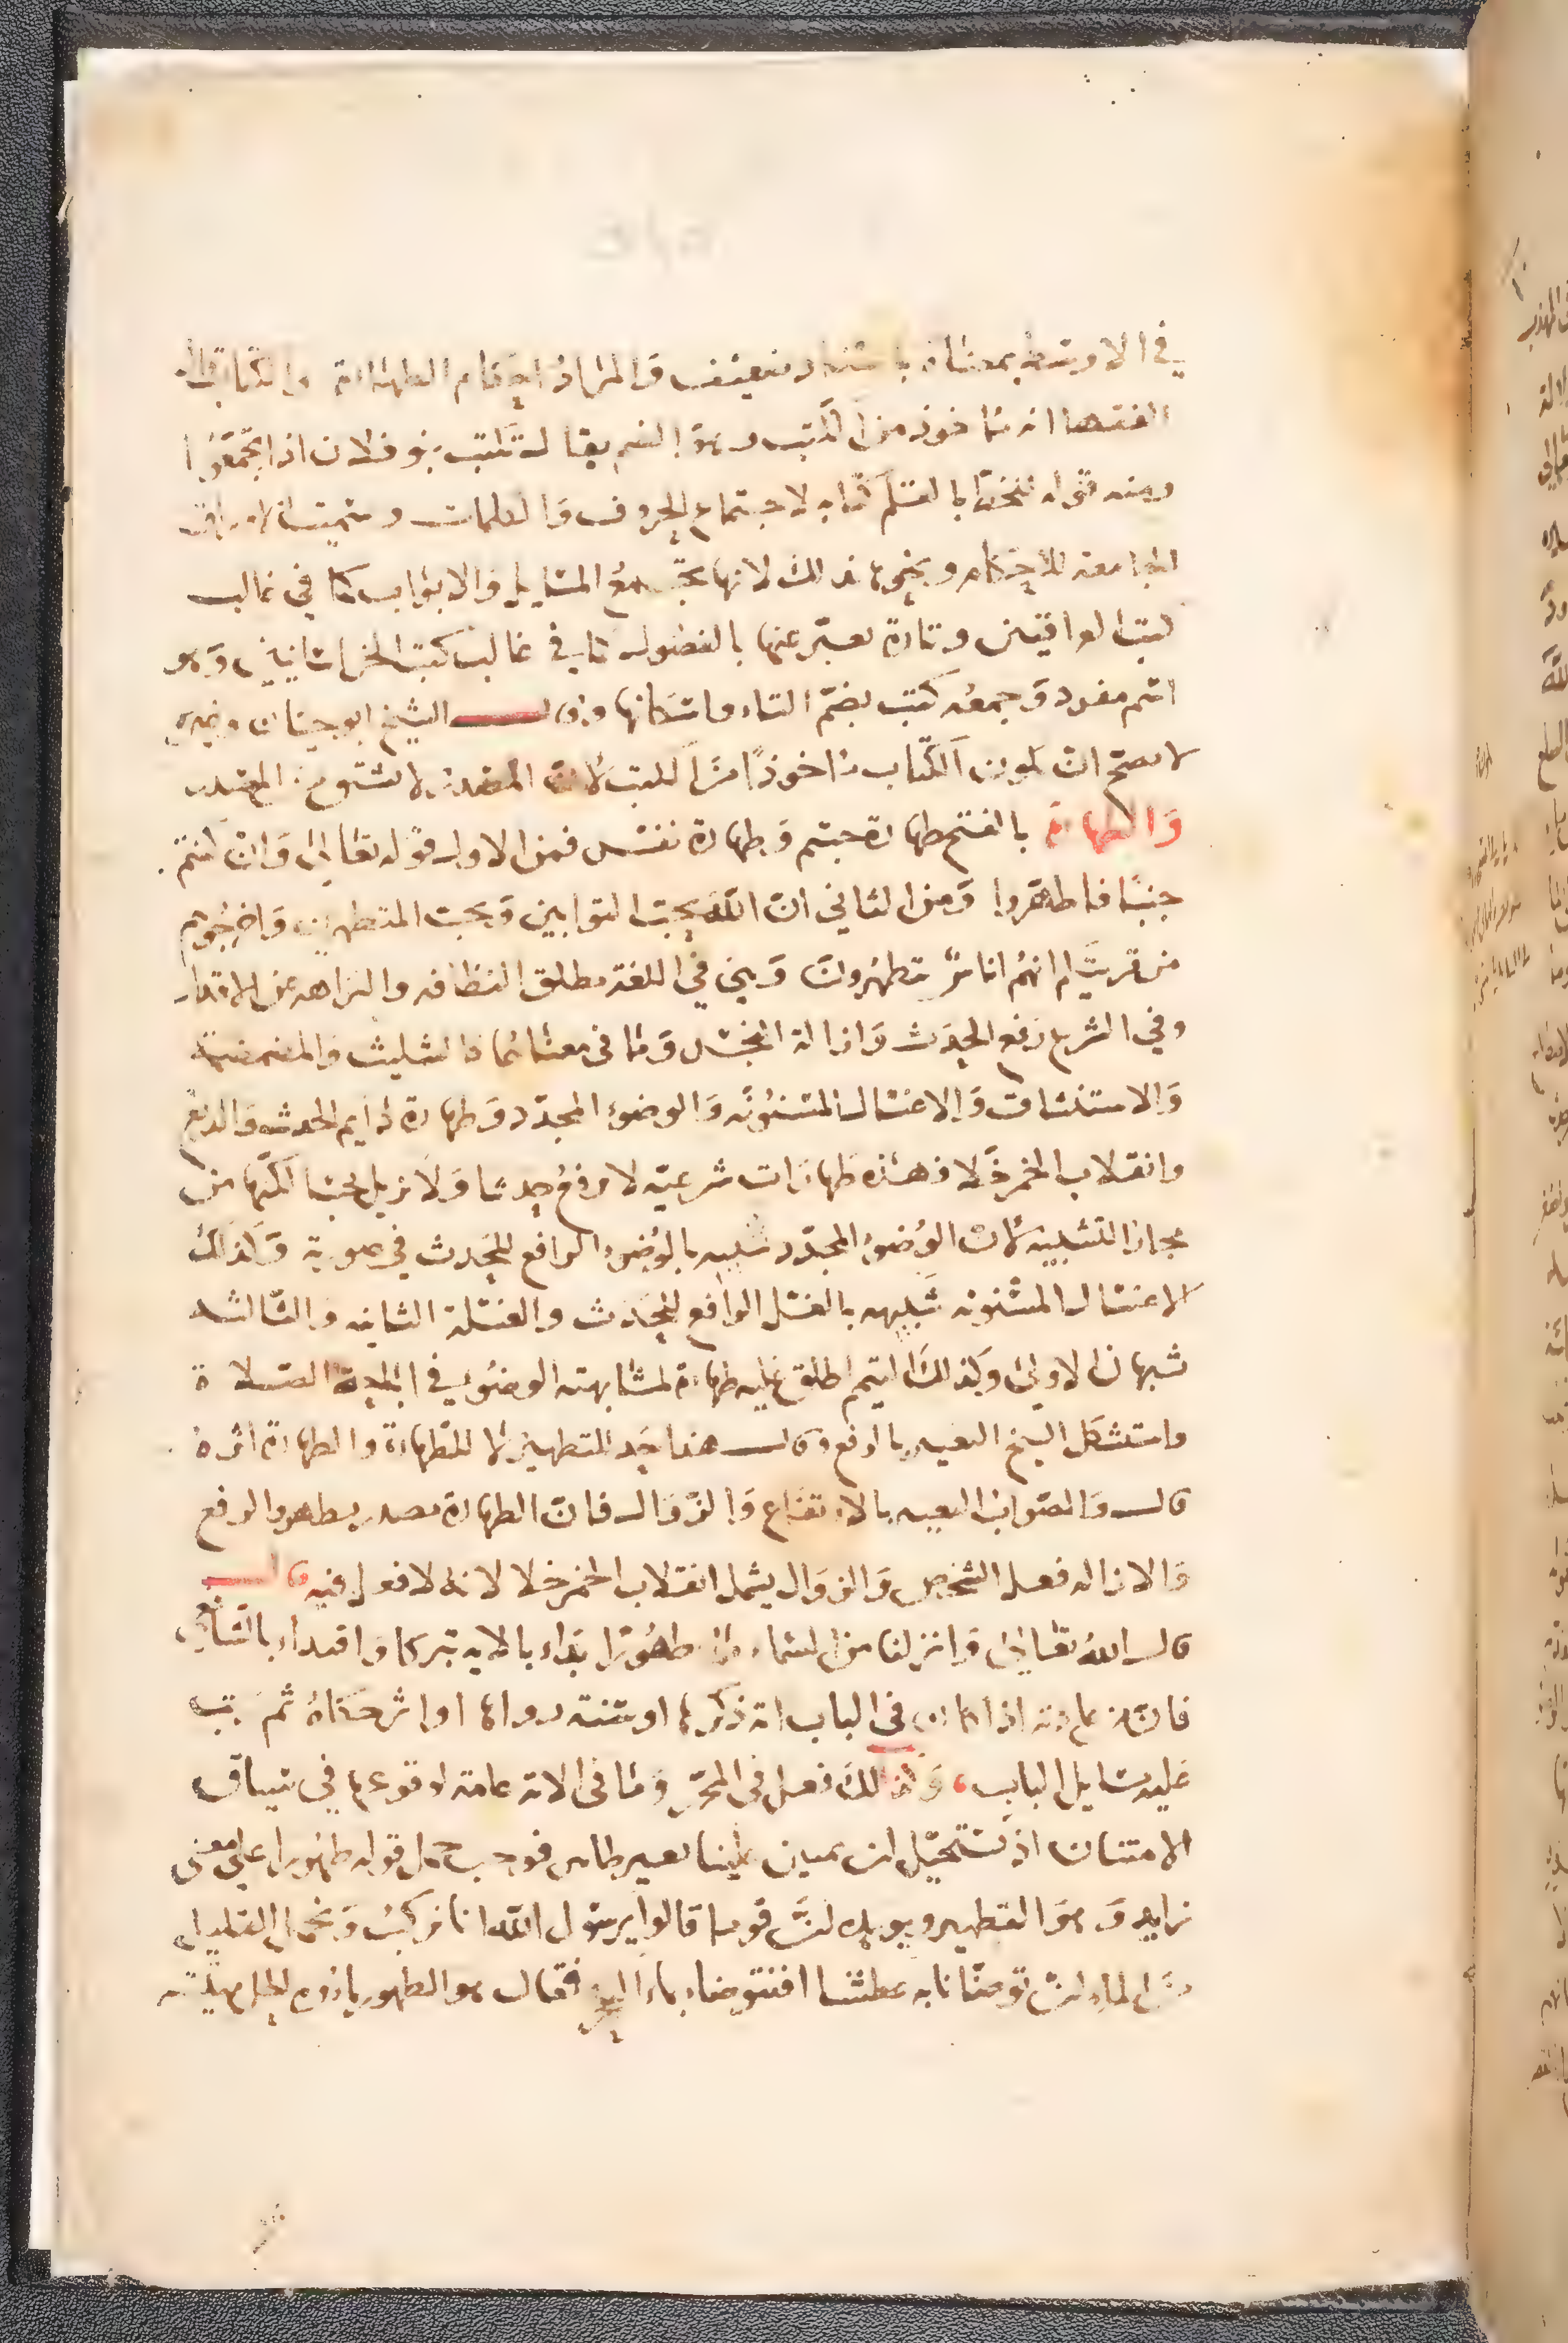 في الاوسط بمعناه باسناد ضعيف والمراد احكام الطهارة والكتاب قال
الفقها انه ماخوذ من الكتب وهو الضم يقال تكتب بنو فلان اذا تجمعوا
ومنه قوله كتاب لاجتماع الحروف والكلمات وسميت الاوراق
الجامعة للاحكام ونحوها بذلك لانها تجمع المسايل والابواب كما في غالب
كتب العراقيين وتارة يعبر عنها بالفصول كما في غالب كتب الخراسانيين وهو
اسم مفرد وجمعه كتب بضم التاء واسكانها وقال الشيخ ابو حيان وغيره
لا يصح ان يكون الكتاب ماخوذًا من الكتب لان المصدر لا يشتق من المصدر
والطهارة بالفتح طهارة جسم وطهارة نفس فمن الاول قوله تعالى وان كنتم
جنبًا فاطهروا ومن الثاني ان الله يحب التوابين ويحب المتطهرين واخرجوهم
من قريتكم انهم اناس يتطهرون وهي في اللغة مطلق النظافه والنزاهه عن الاقذار
وفي الشرع رفع الحدث وازالة النجس وما في معناهما كالتثليث والمضمضة
والاستنشاق والاغتسال المسنونه والوضوء المجدد وطهارة دايم الحدث والدبغ
وانقلاب الخمر خلا فهذه طهارات شرعيه لا ترفع حدثا ولا تزيل نجسا لكنها من
مجاز التشبيه لان الوضوء المجدد شبيه بالوضوء الرافع للحدث في صورته وكذلك
الاغتسال المسنونه شبيهه بالغسل الرافع للحدث والغسلة الثانيه والثالثه
شبهان الاولى وكذلك التيمم اطلق عليه طهارة لمشابهته الوضوء في اباحة الصلاة
واستشكل الشيخ التعبير بالرفع وقال هذا حد للتطهير لا للطهارة والطهارة اثره
قال والصواب التعبير بالارتفاع والزوال فان الطهارة مصدر يطهر والرفع
والازاله فعل الشخص والزوال يشمل انقلاب الخمر خلا لانه لا فعل فيه قال
قال الله تعالى وانزلنا من السماء ماء طهورا بداء بالايه تبركا واقتداء بالشافعي
فان من عادته اذا كان في الباب اية ذكرها او سنة رواها او اثر حكاه ثم رتب
عليه مسايل الباب وكذلك فعل في المحرر وما في الاية عامة لوقوعها في سياق
الامتنان اذ يستحيل ان يمتن علينا بغير طاهر فوجب حمل قوله طهورا على معنى
زايد وهو التطهير ويؤيده ان قوما قالوا يرسول الله انا نركب ونحمل القليل
من الماء ان توضانا به عطشنا افنتوضاء بماء البحر فقال هو الطهور ماؤه الحل ميتته